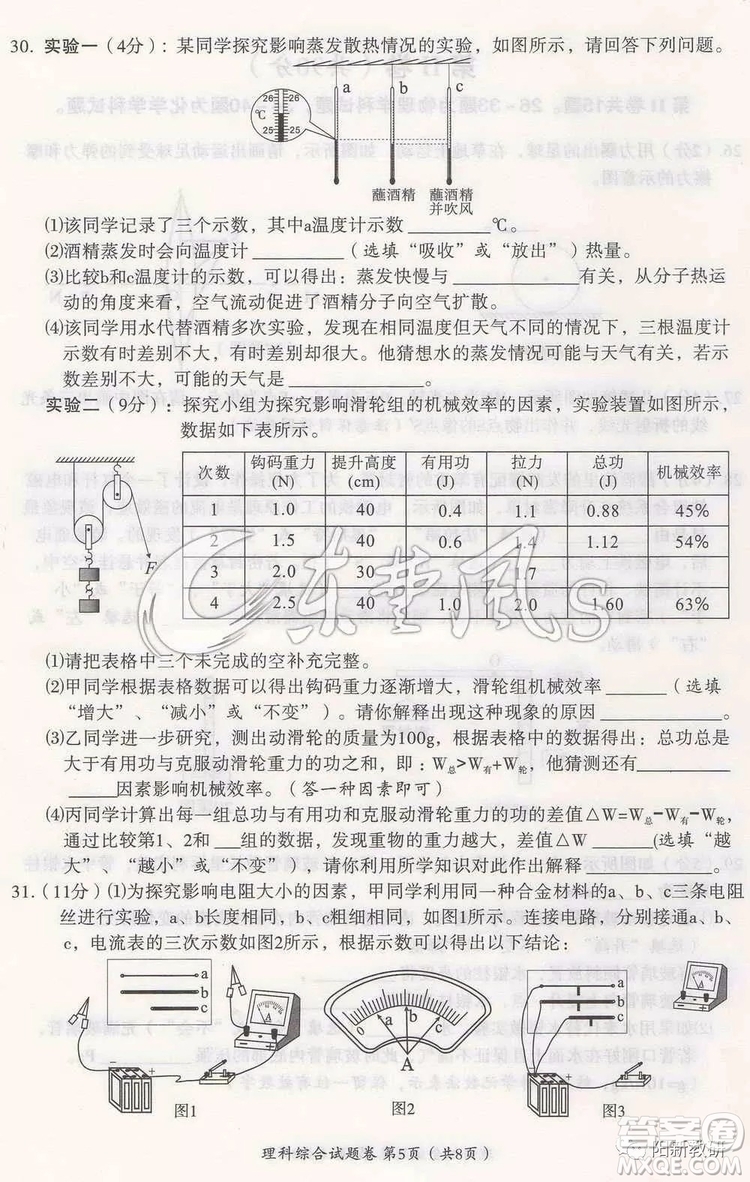 30. 实验一(4分)：某同学探究影响蒸发散热情况的实验，如图所示，请回答下列问题。
a b c
26 26
℃
25 25
蘸酒精 蘸酒精
并吹风
(1)该同学记录了三个示数，其中a温度计示数______℃。
(2)酒精蒸发时会向温度计______(选填“吸收”或“放出”)热量。
(3)比较b和c温度计的示数，可以得出：蒸发快慢与______有关，从分子热运
动的角度来看，空气流动促进了酒精分子向空气扩散。
(4)该同学用水代替酒精多次实验，发现在相同温度但天气不同的情况下，三根温度计
示数有时差别不大，有时差别却很大。他猜想水的蒸发情况可能与天气有关，若示
数差别不大，可能的天气是______。
实验二(9分)：探究小组为探究影响滑轮组的机械效率的因素，实验装置如图所示，
数据如下表所示。
次数 钩码重力(N) 提升高度(cm) 有用功(J) 拉力(N) 总功(J) 机械效率
1 1.0 40 0.4 1.1 0.88 45%
2 1.5 40 0.6 1.4 1.12 54%
3 2.0 30 1.7
4 2.5 40 1.0 2.0 1.60 63%
F
(1)请把表格中三个未完成的空补充完整。
(2)甲同学根据表格数据可以得出钩码重力逐渐增大，滑轮组机械效率______(选填
“增大”、“减小”或“不变”)。请你解释出现这种现象的原因______。
(3)乙同学进一步研究，测出动滑轮的质量为100g，根据表格中的数据得出：总功总是
大于有用功与克服动滑轮重力的功之和，即：W总>W有+W轮，他猜测还有
______因素影响机械效率。(答一种即可)
(4)丙同学计算出每一组总功与有用功和克服动滑轮重力的功的差值△W=W总-W有-W轮，
通过比较第1、2和___组的数据，发现重物的重力越大，差值______(选填“越
大”、“越小”或“不变”)。请用所学知识对此作出解释______。
31. (11分)(1)为探究影响电阻大小的因素，甲同学利用同一种合金材料的a、b、c三条电阻
丝进行实验。a、b长度相同，b、c粗细相同，如图1所示。连接电路，分别接通a、b、
c，电流表的三次示数如图2所示，根据示数可以得出以下结论：
a
b
c
+
图1
0 5 10
A
图2
a
b
c
+
图3
理科综合试题卷 第5页（共8页）
东楚风s
阳新教研